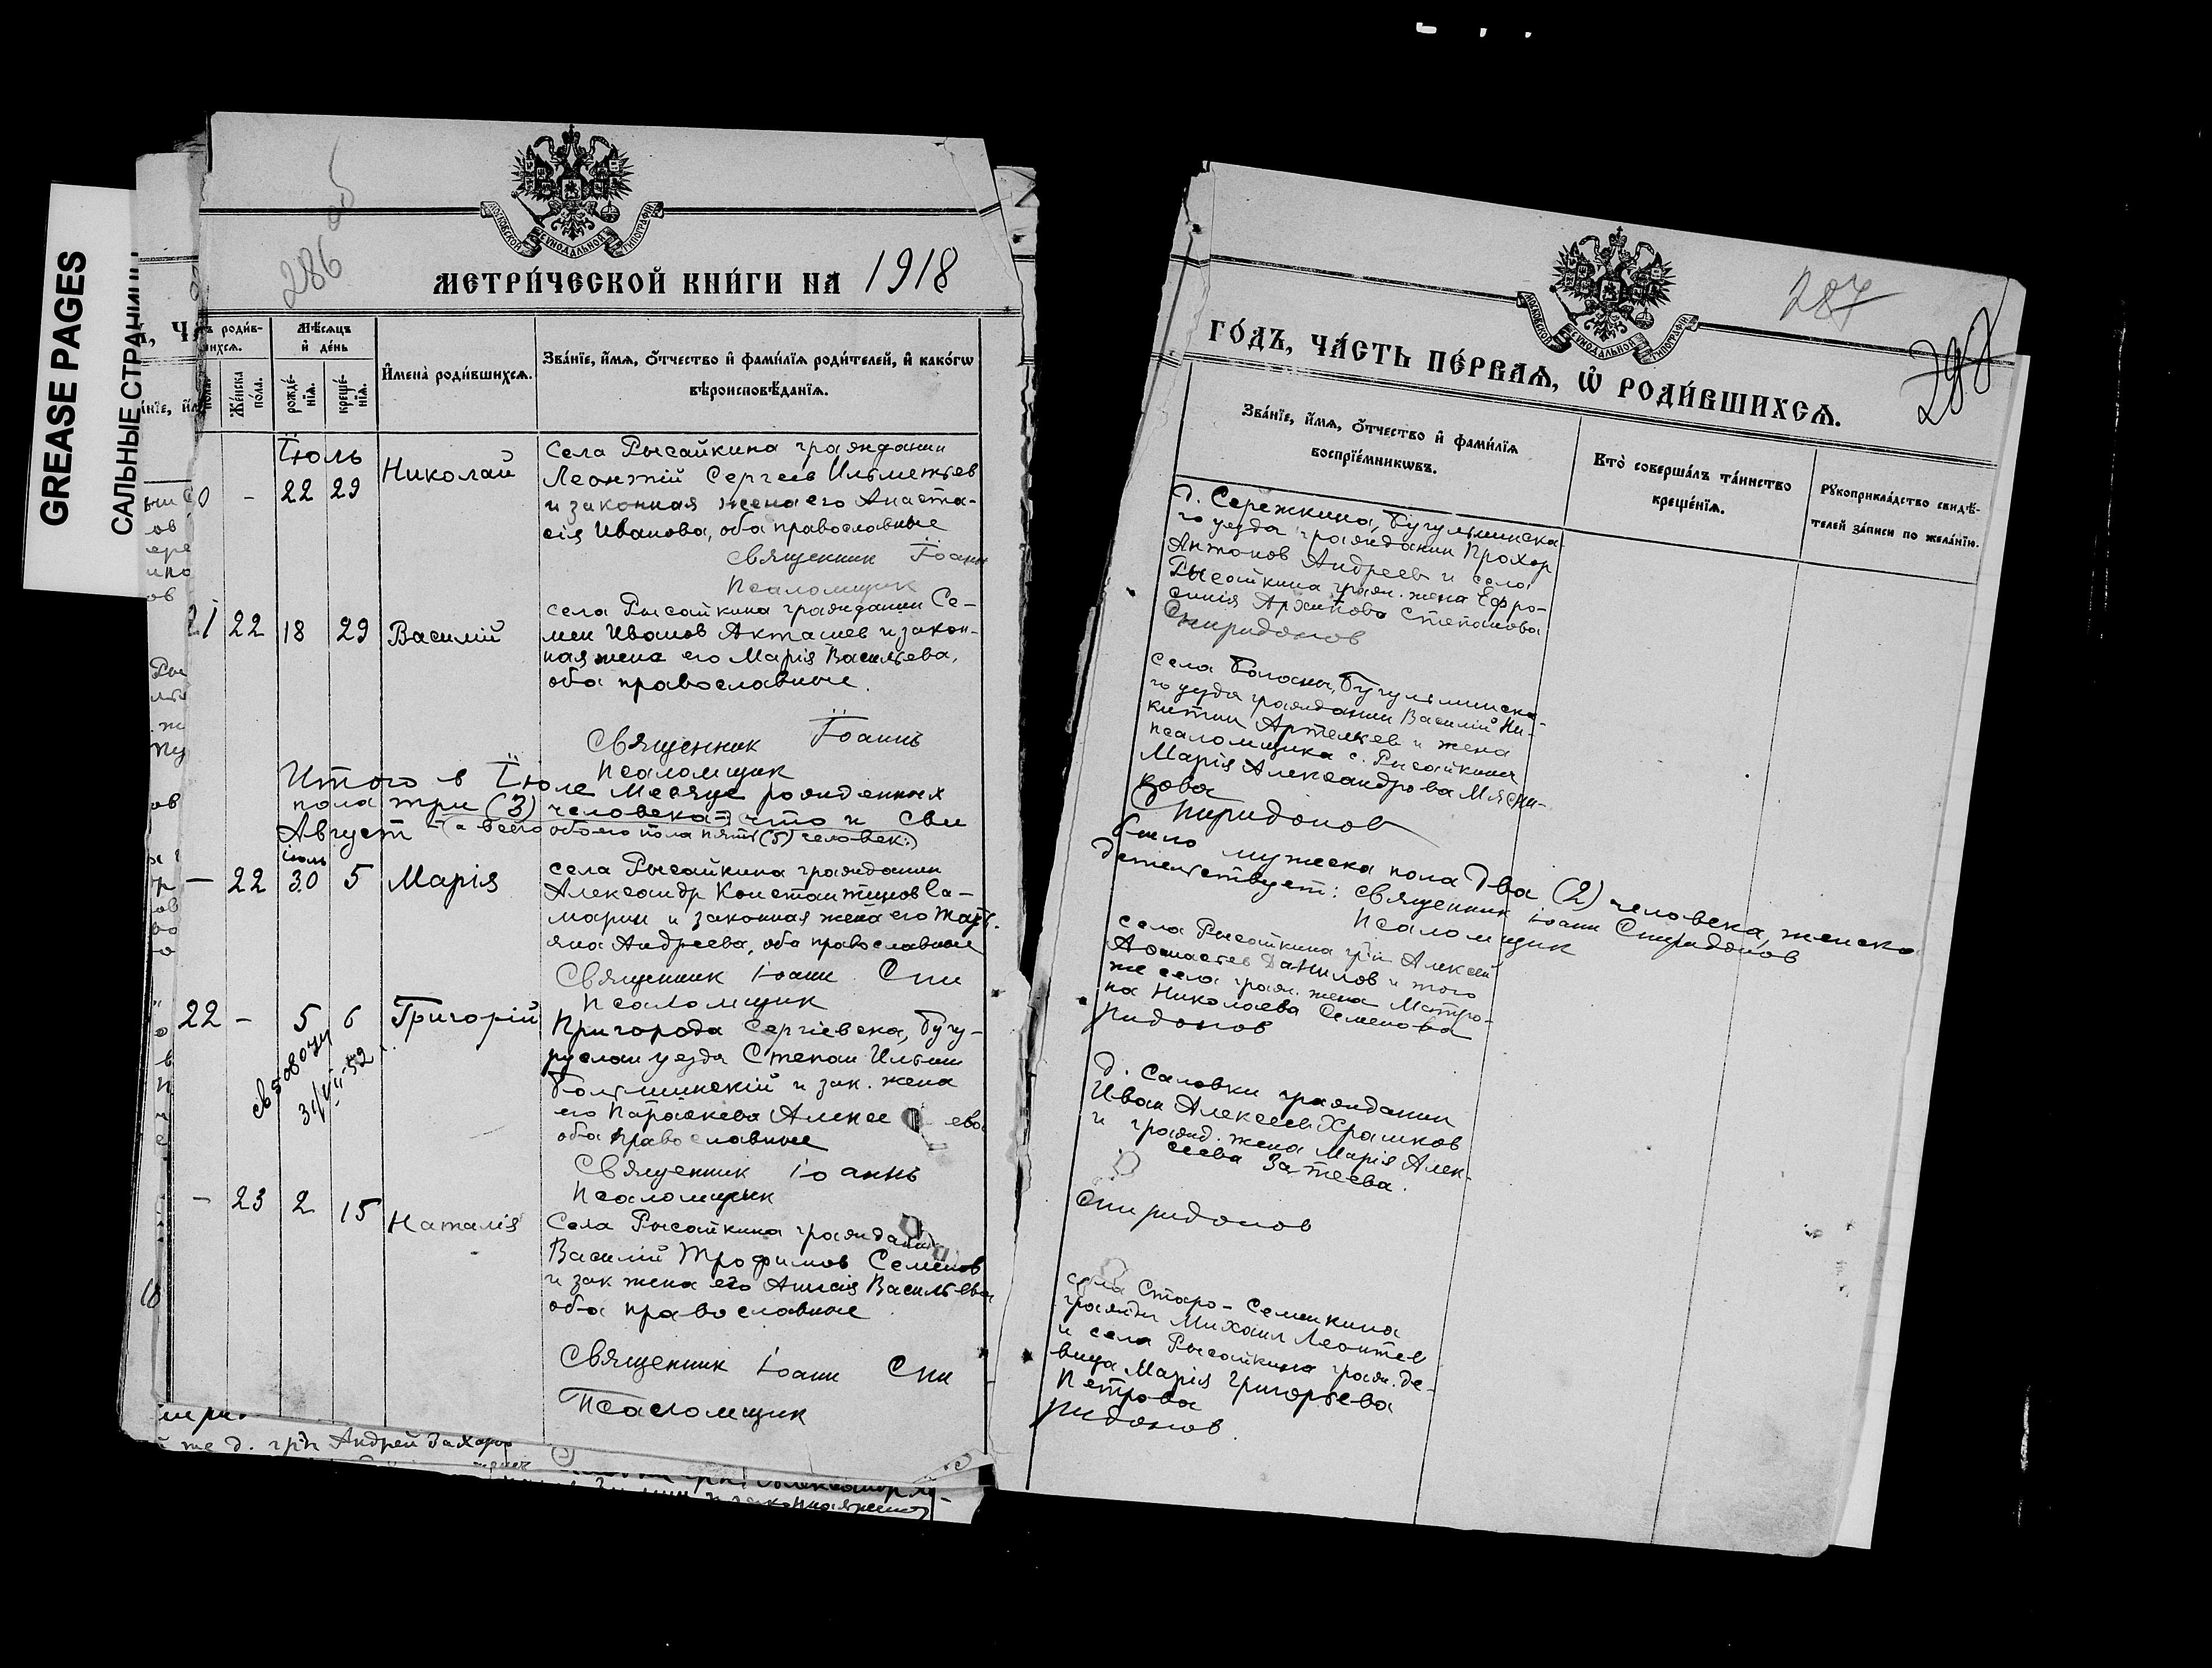 GREASE PAGES
САЛЬНЫЕ СТРАНИЦЫ
286 об
МОСКОВСКОЙ СѴНОДАЛЬНОЙ ТИПОГРАФІИ
МЕТРИ́ЧЕСКОЙ КНИ́ГИ НА 1918
Же́нска по́ла.
Мѣ́сяцъ и де́нь
рожде́нїя.
креще́нїя.
И҆мена̀ роди́вшихся.
Зва́нїе, и҆́мя, ѻ҆́тчество и҆ фами́лїя роди́телей, и҆ како́гѡ
вѣроисповѣ́данїя.
Іюль
0 - 22 29 Николай
Села Рысайкина гражданин
Леонтій Сергеев Ильметьев
и законная жена его Анаста-
сія Иванова, оба православные
Священник Іоанн
Псаломщик
21 22 18 29 Василій
села Рысайкина гражданин Се-
мен Иванов Акташев и закон-
ная жена его Марія Васильева,
оба православные.
Священник Іоаннъ
Псаломщик
Итого в Іюле месяце рожденных
пола три (3) человека что и сви
Август (а всего обоего пола пять (5) человек)
іюль
- 22 30 5 Марія
села Рысайкина гражданин
Александр Константинов Са-
марин и законная жена его Мать-
яна Андреева, оба православные
Священник Іоанн Спи
Псаломщик
22 - 5 6 Григорій
св 508074
31/VII-52
Пригорода Сергіевска, Бугу-
руслан уезда Степан Ильин
Большинскій и зак. жена
его Параскева Алексеева
оба православные
Священник Іоаннъ
Псаломщик
- 23 2 15 Наталія
Села Рысайкина гражданин
Василій Трофимов Семенов
и зак жена его Анисія Васильева
оба православные
Священник Іоанн Спи
Псаломщик
же д. гр-н Андрей Захаров
287
МОСКОВСКОЙ СѴНОДАЛЬНОЙ ТИПОГРАФІИ
ГО́ДЪ, ЧА́СТЬ ПЕ́РВАЯ, Ѡ҆ РОДИ́ВШИХСЯ.
Зва́нїе, и҆́мя, ѻ҆́тчество и҆ фами́лїя
воспрїе́мникѡвъ.
Кто̀ соверша́лъ та́инство
креще́нїя.
Рꙋкоприкла́дство свидѣ́-
телей за́писи по жела́нїю.
д. Сережкина, Бугульминска-
го уезда гражданин Прохор
Антонов Андреев и села
Рысайкина гражд. жена Ефро-
синія Архипова Степанова
Спиридонов
села Боланы, Бугульминска-
го уезда гражданин Василій Ни-
китин Артемьев и жена
псаломщика с. Рысайкина
Марія Александрова Мясни-
кова
Спиридонов
было мужеска пола два (2) человека, женска
детельствует: священник Іоанн Спиридонов
Псаломщик
села Рысайкина гр-н Алексей
Афанасьев Данилов и того
же села гражд. жена Матро-
на Николаева Семенова
ридонов
д. Саловки гражданин
Иван Алексеев Храмков
и гражд. жена Марія Алек-
сеева Затеева.
Спиридонов
села Старо-Семенкина
гражд-н Михаил Леонтьев
и села Рысайкина гражд. де-
вица Марія Григорьева
Петрова
ридонов.